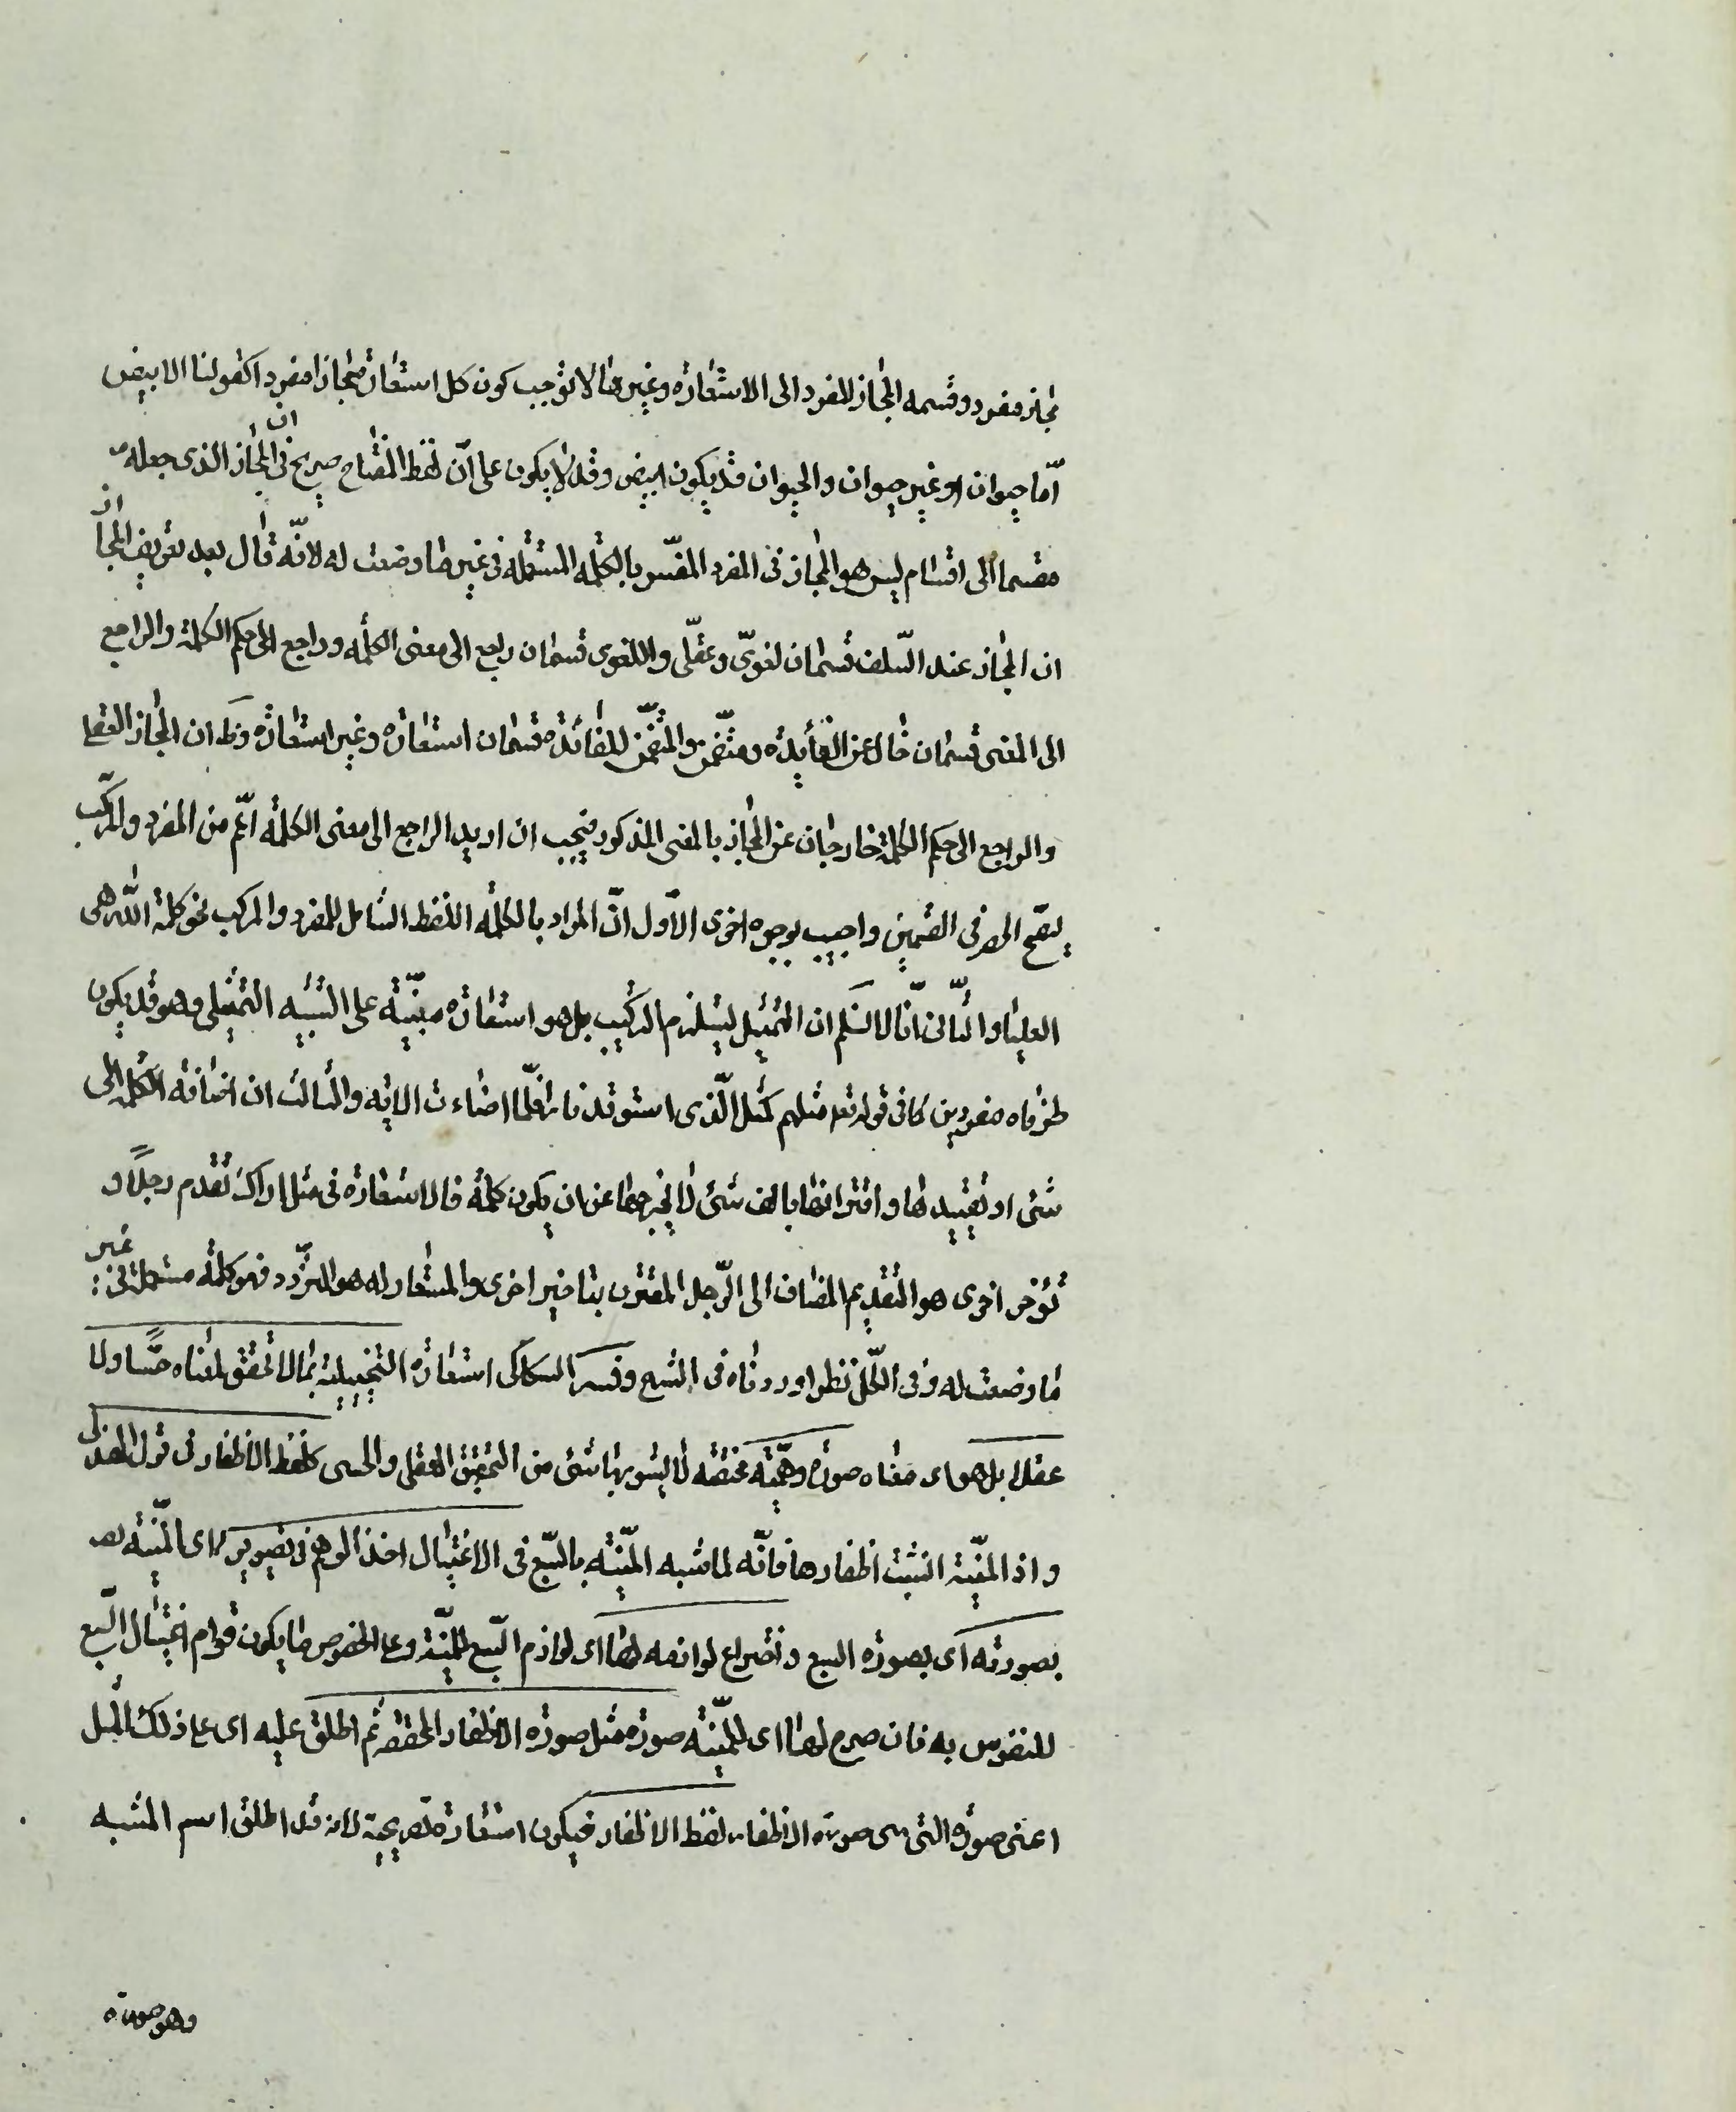 مجاز مفرد وقسمه المجاز المفرد الى الاستعارة وغيرها لا توجب كون كل استعارة مجازا مفردا كقولنا الابيض
امّا حيوان او غير حيوان والحيوان قد يكون ابيض وقد لا يكون على انّ لفظ المفتاح صريح فى ان المجاز الذى جعله
مقسما الى اقسام ليس هو المجاز فى المفرد المفسّر بالكلمه المستعمله فى غير ما وضعت له لانّه قال بعد تعريف المجاز
ان المجاز عند السّلف قسمان لغوىّ وعقلى واللغوى قسمان راجع الى معنى الكلمه وراجع الى حكم الكلمة والراجع
الى المعنى قسمان خال عن الفائده ومتضمّن والمتضمّن للفائدة قسمان استعاره وغير استعاره وظ ان المجاز العقلى
والراجع الى حكم الكلمة خارجان عن المجاز بالمعنى المذكور فيجب ان اريد الراجع الى معنى الكلمة اعم من المفرد والمركّب
ليصّح الحصر فى القسمين واجيب بوجوه اخرى الاوّل انّ المراد بالكلمه اللفظ الشامل للمفرد والمركب نحو كلمة اللّه هى
العليا والثانى انّا لا نسلم ان التمثيل يستلزم التركيب بل هو استعاره مبنيّة على التشبيه التمثيلى وهو قد يكون
طرفاه مفردين كما فى قوله تع مثلهم كمثل الّذى استوقد نارا فلمّا اضاءت الايه والثالث ان اضافه الكلمه الى
شئ او تقييدها واقترانها بالف شئ لا يخرجها عن ان يكون كلمة فالاستعاره فى مثل اراك تقدم رجلاً و
تؤخر اخرى هو التقديم المضاف الى الرّجل المقترن بتاخير اخرى والمستعار له هو التردّد فهو كلمة مستعملة فى غير
ما وضعت له وفى الكّل نظر اوردناه فى الشرح وفسر السكاكى استعاره التخييلية بما لا تحقق لمعناه حسًّا ولا
عقلا بل هو اى معناه صورة وهميّة محضه لا يشوبها شئ من التحقيق العقلى والحسى كلفظ الاظفار فى قول الهذلى
واذ المنيّة انشبت اظفارها فانّه لما شبه المنيّته بالسّبع فى الاغتيال اخذ الوهم فى تصويرها اى المنيّته
بصورته اى بصورة السبع واختراع لوازمه لها اى لوازم السّبع للمنيّة وعلى الخصوص ما يكون قوام اغتيال السّبع
للنفوس به فان صرح لها اى للمنيّته صورة مثل صورة الاظفار المحققه ثم اطلق عليه اى على ذلك المثل
اعنى صورة التى هى صورة الاظفار لفظ الاظفار فيكون استعارة تصريحيّة لانه قد اطلق اسم المشبه
وهو صورة